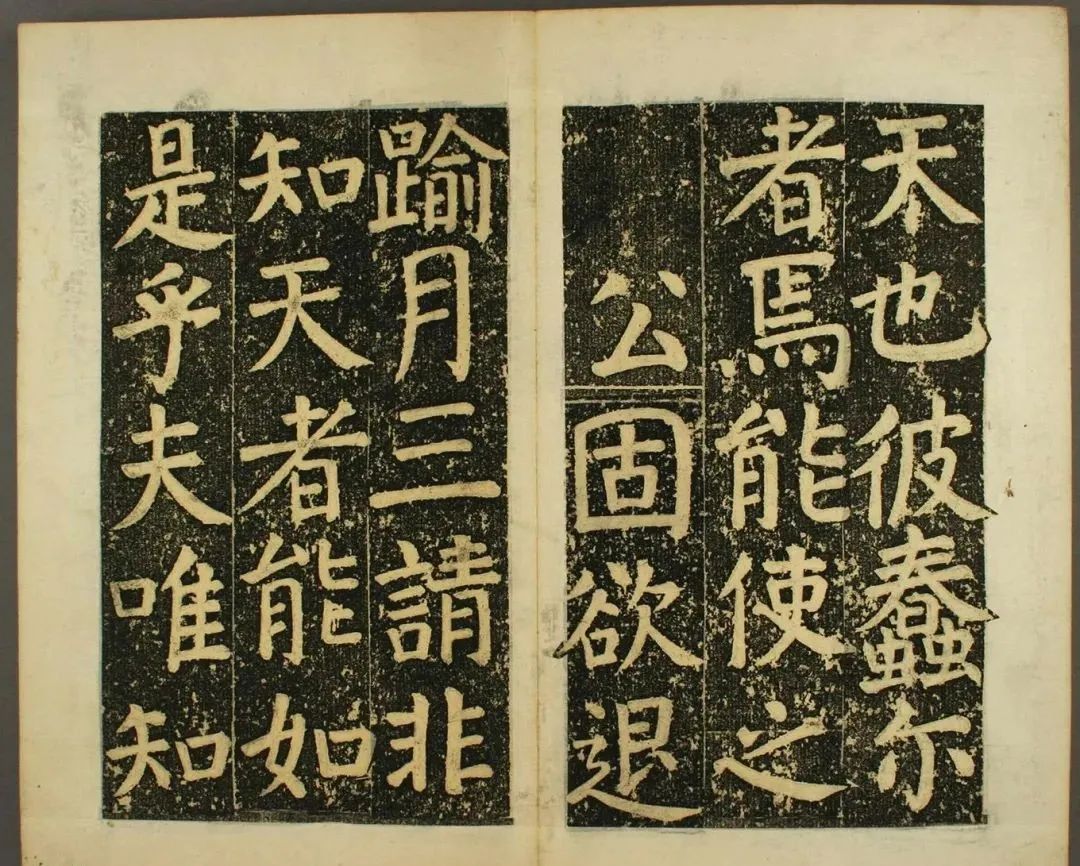 天也彼蠢尔
者焉能使之
公固欲退
踰月三請非
知天者能如
是乎夫唯知